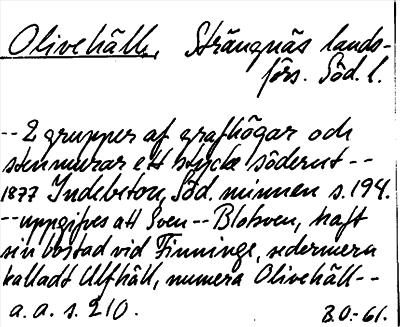 Olivehäll, Strängnäs lands-
förs. Söd. l.
-- 2 grupper af grafhögar och
stenmurar ett stycke söderut --
1877 Indebetou, Söd. minnen s. 194.
-- uppgifves att Sven -- Blotsven, haft
sin bostad vid Finninge, sedermera
kalladt Ulfhäll, numera Olivehäll --
a. a. s. 210. B.O. -61.